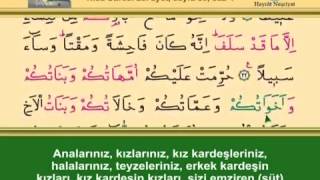 Hayrât Neşriyat
اِلَّا مَا قَدْ سَلَفَ ۜ اِنَّهُ كَانَ فَاحِشَةً وَمَقْتًا ۜ وَسَٓاءَ
سَبِيلًا ﴿٢٢﴾ حُرِّمَتْ عَلَيْكُمْ اُمَّهَاتُكُمْ وَبَنَاتُكُمْ
وَاَخَوَاتُكُمْ وَعَمَّاتُكُمْ وَخَالَاتُكُمْ وَبَنَاتُ الْاَخِ
Analarınız, kızlarınız, kız kardeşleriniz,
halalarınız, teyzeleriniz, erkek kardeşin
kızları, kız kardeşin kızları, sizi emziren (süt)